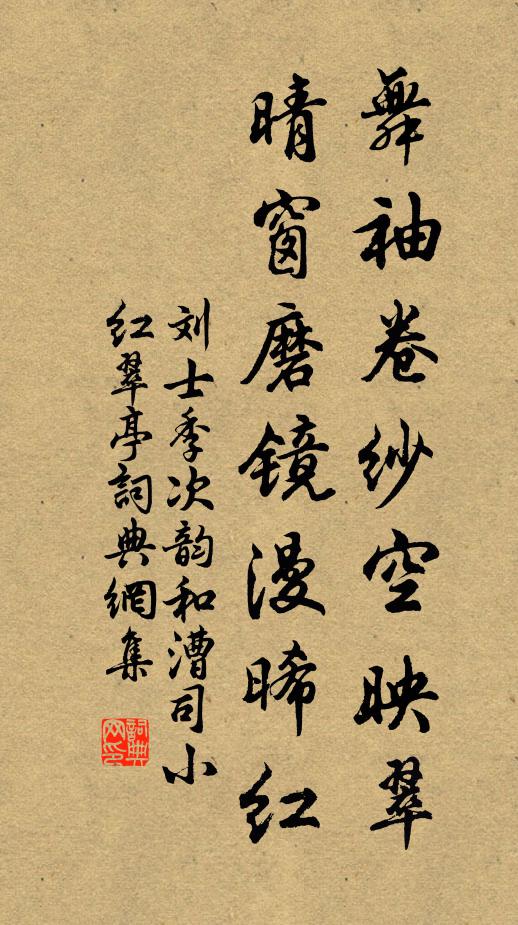 舞袖卷纱空映翠
晴窗磨镜漫晞红
刘士季次韵和漕司小
红翠亭詞典網集
詞典